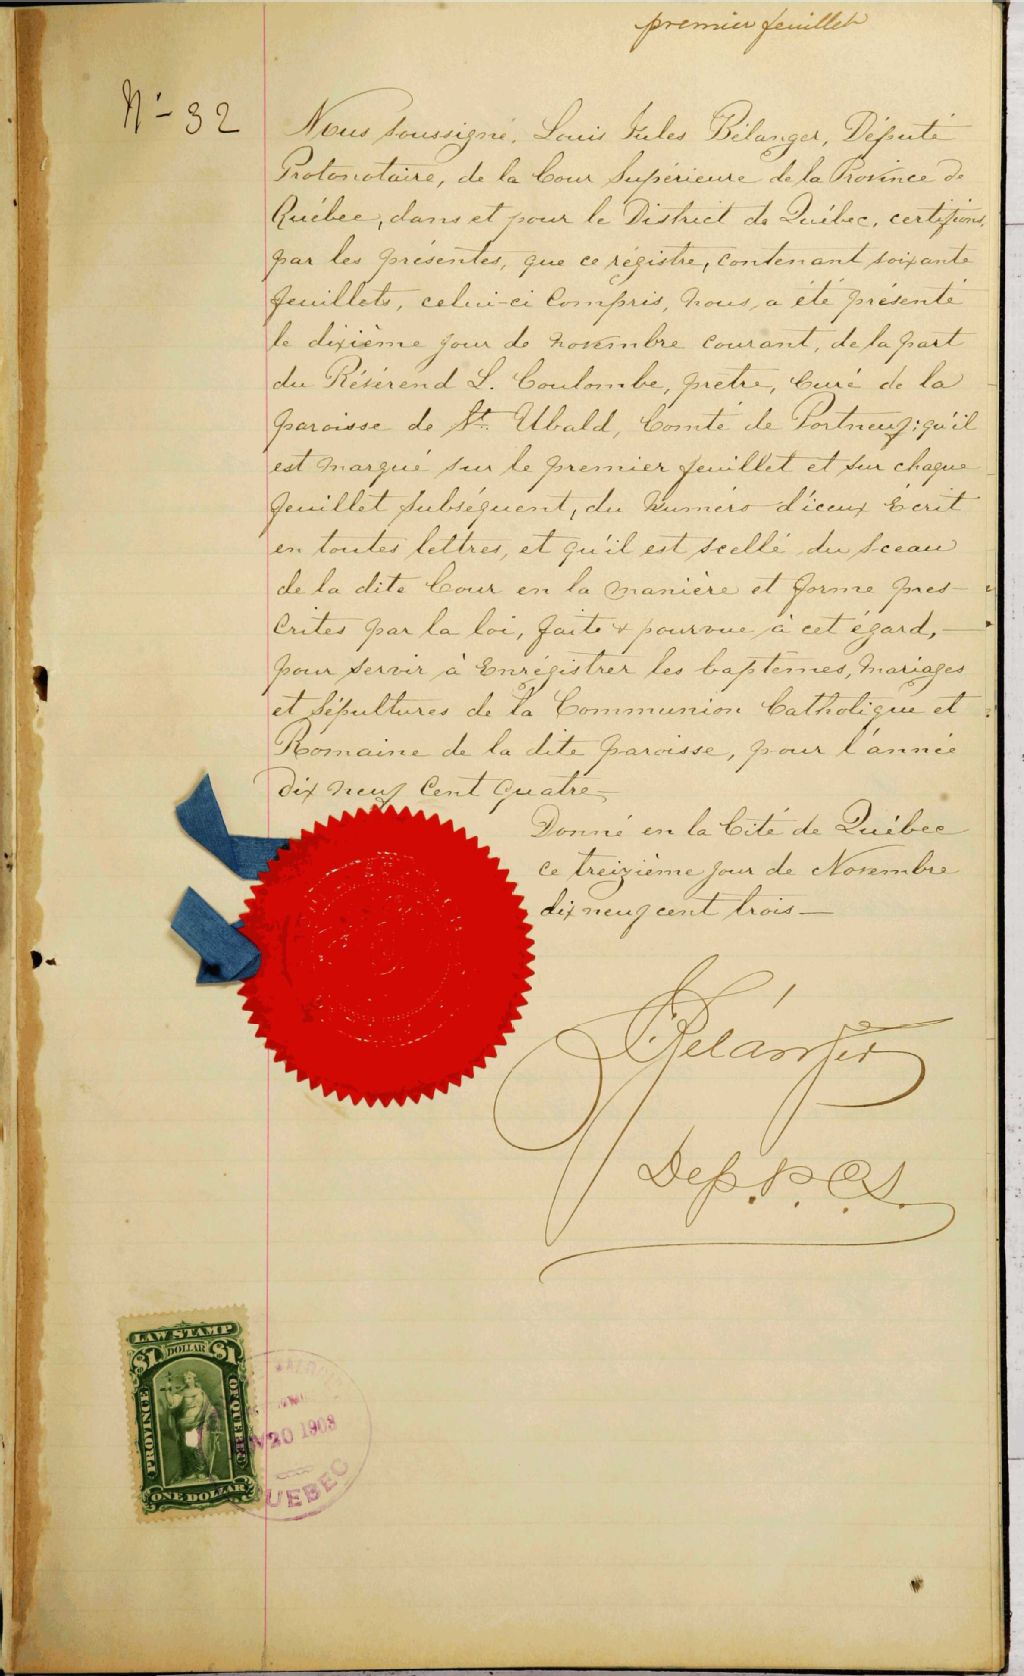 premier feuillet
No - 32
Nous soussigné, Louis Jules Bélanger, Député
Protonotaire, de la Cour Supérieure de la Province de
Québec, dans et pour le District de Québec, certifions,
par les présentes, que ce régistre, contenant soixante
feuillets, celui-ci Compris, nous, a été présenté
le dixième jour de novembre courant, de la part
du Révérend L. Coulombe, pretre, Curé de la
paroisse de St. Ubald, Comté de Portneuf; qu'il
est marqué sur le premier feuillet et sur chaque
feuillet subséquent, du numéro d'iceux Ecrit
en toutes lettres, et qu'il est scellé du sceau
de la dite Cour en la manière et forme pres-
crites par la loi, faite & pourvue à cet égard, —
pour servir à Enrégistrer les baptemes, mariages
et Sépultures de la Communion Catholique et
Romaine de la dite paroisse, pour l'année
dix neuf Cent quatre —
Donné en la Cité de Québec
ce treizième jour de Novembre
dix neuf cent trois —
Bélanger
Dep. P. C. S.
LAW STAMP
$1 DOLLAR $1
PROVINCE OF QUEBEC
ONE DOLLAR
20 1903
QUEBEC